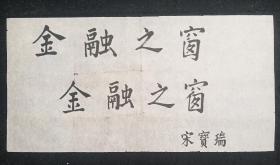 金融之窗
金融之窗
宋寳瑞